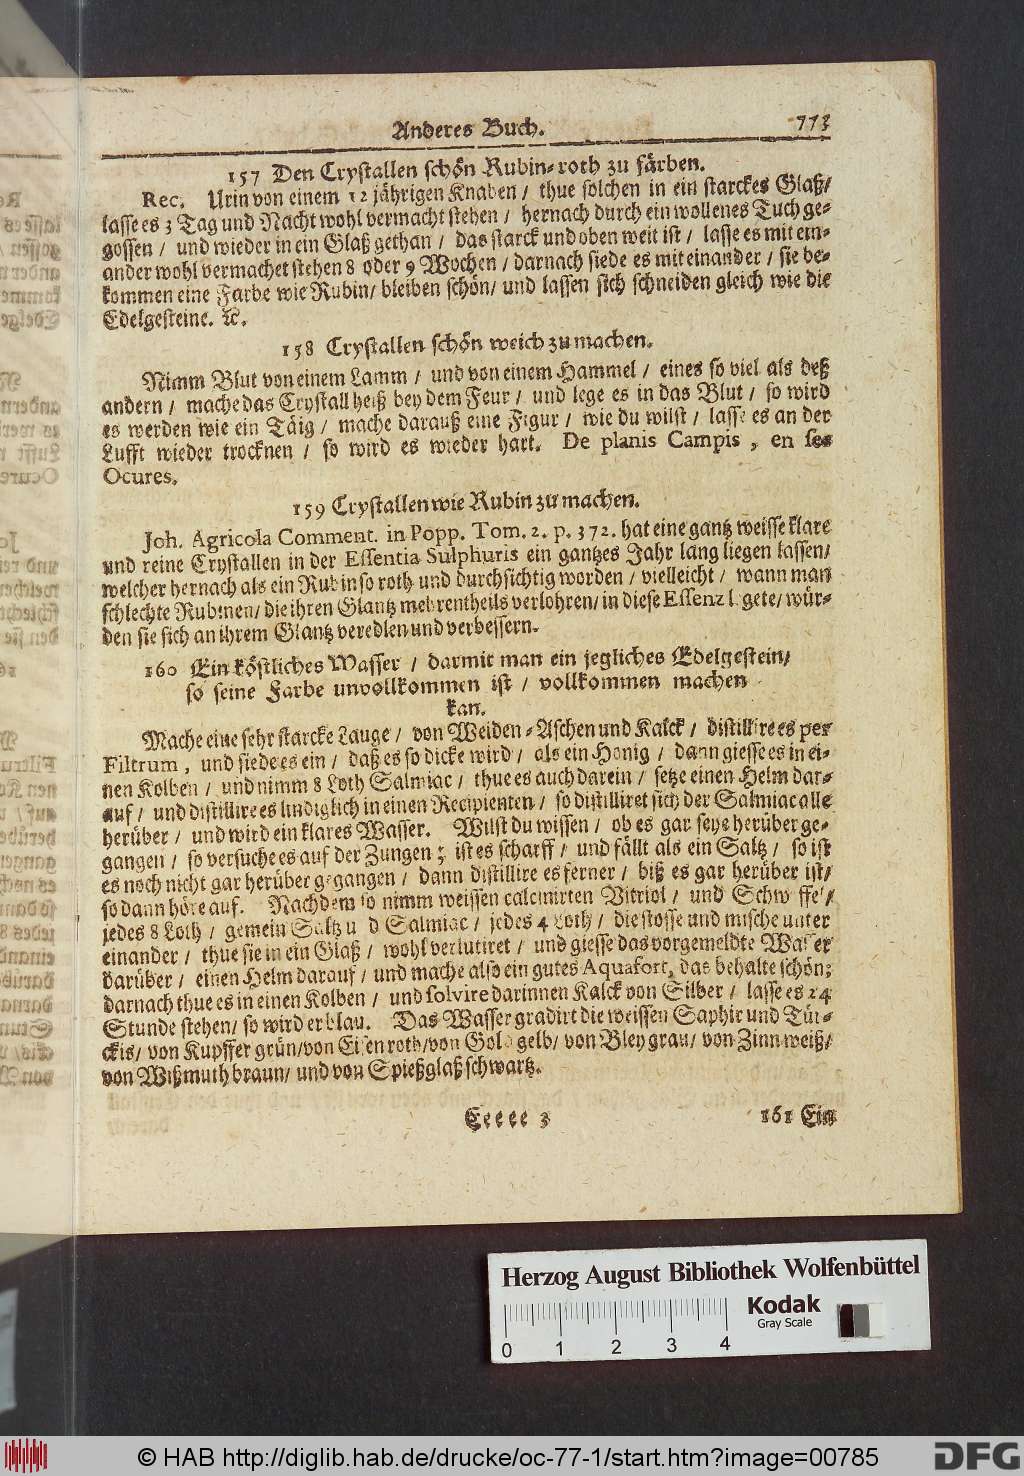 Anderes Buch. 773
157 Den Crystallen schön Rubin-roth zu färben.
Rec. Urin von einem 12 jährigen Knaben / thue solchen in ein starckes Glaß/
lasse es 3 Tag und Nacht wohl vermacht stehen / hernach durch ein wollenes Tuch ge-
gossen / und wieder in ein Glaß gethan / das starck und oben weit ist / lasse es mit ein-
ander wohl vermachet stehen 8 oder 9 Wochen / darnach siede es mit einander / sie be-
kommen eine Farbe wie Rubin/ bleiben schön/ und lassen sich schneiden gleich wie die
Edelgesteine. ꝛc.
158 Crystallen schön weich zu machen.
Nimm Blut von einem Lamm / und von einem Hammel / eines so viel als deß
andern / mache das Crystall heiß bey dem Feur / und lege es in das Blut / so wird
es werden wie ein Täig / mache darauß eine Figur / wie du wilst / lasse es an der
Lufft wieder trocknen / so wird es wieder hart. De planis Campis , en ses
Ocures.
159 Crystallen wie Rubin zu machen.
Joh. Agricola Comment. in Popp. Tom. 2. p. 372. hat eine gantz weisse klare
und reine Crystallen in der Essentia Sulphuris ein gantzes Jahr lang liegen lassen/
welcher hernach als ein Rubin so roth und durchsichtig worden / vielleicht / wann man
schlechte Rubinen/ die ihren Glantz mehrentheils verlohren/ in diese Essenz legete/ wür-
den sie sich an ihrem Glantz veredlen und verbessern.
160 Ein köstliches Wasser / darmit man ein jegliches Edelgestein/
so seine Farbe unvollkommen ist / vollkommen machen
kan.
Mache eine sehr starcke Lauge / von Weiden-Aschen und Kalck / distillire es per
Filtrum , und siede es ein / daß es so dicke wird / als ein Honig / dann giesse es in ei-
nen Kolben / und nimm 8 Loth Salmiac / thue es auch darein / setze einen Helm dar-
auf / und distillire es lindiglich in einen Recipienten / so distilliret sich der Salmiac alle
herüber / und wird ein klares Wasser. Wilst du wissen / ob es gar seye herüber ge-
gangen / so versuche es auf der Zungen; ist es scharff / und fällt als ein Saltz / so ist
es noch nicht gar herüber gegangen / dann distillire es ferner / biß es gar herüber ist/
so dann höre auf. Nachdem so nimm weissen calcinirten Vitriol / und Schwffel/
jedes 8 Loth / gemein Saltz u d Salmiac / jedes 4 Loth / die stosse und mische unter
einander / thue sie in ein Glaß / wohl verlutiret / und giesse das vorgemeldte Wasser
darüber / einen Helm darauf / und mache also ein gutes Aquafort, das behalte schön;
darnach thue es in einen Kolben / und solvire darinnen Kalck von Silber / lasse es 24
Stunde stehen/ so wird er blau. Das Wasser gradirt die weissen Saphir und Tür-
ckis/ von Kupffer grün/von Eisen roth/von Gold gelb/ von Bley grau/ von Zinn weiß/
von Wißmuth braun/ und von Spießglaß schwartz.
Eeeee 3 161 Ein
Herzog August Bibliothek Wolfenbüttel
Kodak
Gray Scale
0 1 2 3 4
© HAB http://diglib.hab.de/drucke/oc-77-1/start.htm?image=00785
DFG